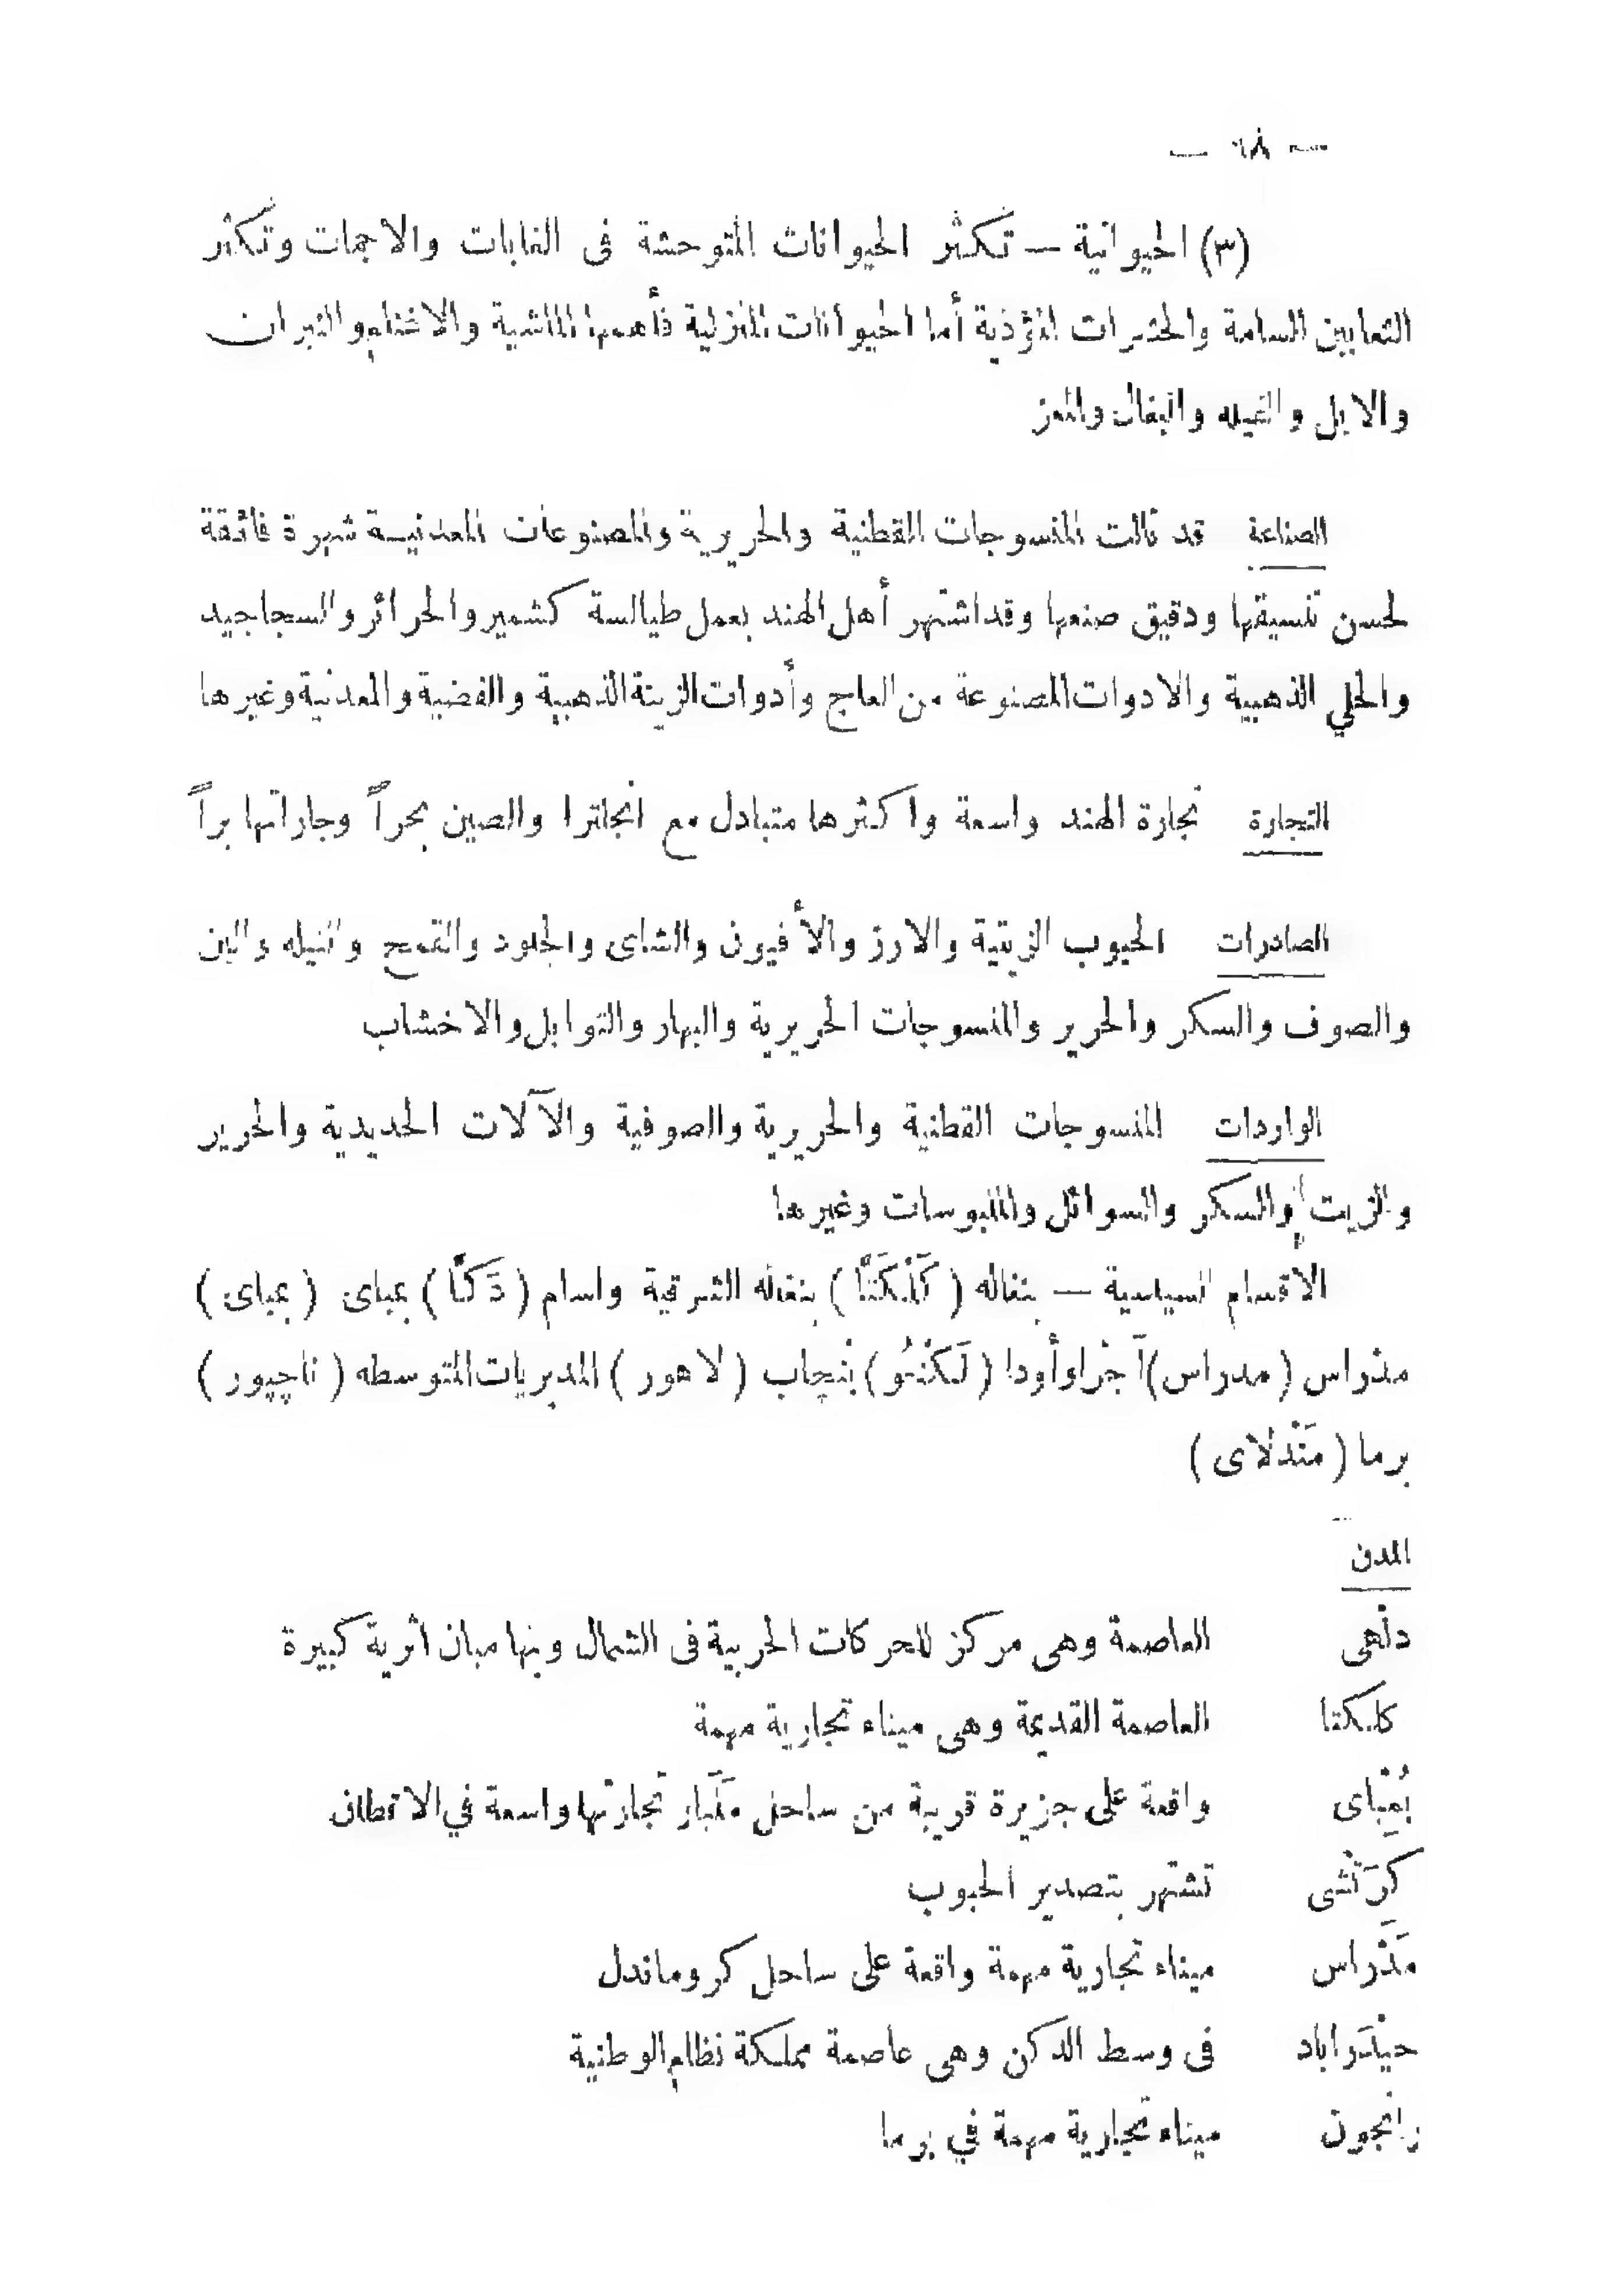 — ٦٨ —
(٣) الحيوانية — تكثر الحيوانات المتوحشة فى الغابات والاجمات وتكثر
الثعابين السامة والحشرات المؤذية أما الحيوانات المنزلية فأهمها الماشية والاغنام والثيران
والابل والفيله والبغال والمعز
الصناعة قد نالت المنسوجات القطنية والحريرية والمصنوعات المعدنيـة شهرة فائقة
لحسن تنسيقها ودقيق صنعها وقد اشتهر أهل الهند بعمل طيالسة كشمير والحرائر والسجاجيد
والحلي الذهبية والادوات المصنوعة من العاج وأدوات الزينة الذهبية والفضية والمعدنية وغيرها
التجارة تجارة الهند واسعة واكثرها متبادل مع انجلترا والصين بحراً وجاراتها براً
الصادرات الحبوب الزيتية والارز والأفيون والشاى والجلود والقمح والنيله والبن
والصوف والسكر والحرير والمنسوجات الحريرية والبهار والتوابل والاخشاب
الواردات المنسوجات القطنية والحريرية والصوفية والآلات الحديدية والحرير
والزيت والسكر والسوائل والملبوسات وغيرها
الاقسام السياسية — بنغاله ( كَلْكَتَّا ) بنغاله الشرقية واسام ( دَكَّا ) بمباى ( بمباى )
مدْراس ( مدراس ) آجْراوأودا ( لَكْنَهُو ) بُنْجاب ( لاهور ) المديريات المتوسطه ( ناجپور )
برما ( مَنْدلاى )
المدن
دلْهى العاصمة وهى مركز للحركات الحربية فى الشمال وبها مبان اثرية كبيرة
كلكتا العاصمة القديمة وهى ميناء تجارية مهمة
بُمْباى واقعة على جزيرة قريبة من ساحل مَلَبار تجارتها واسعة في الاقطان
كَرَتْشى تشتهر بتصدير الحبوب
مَدْراس ميناء تجارية مهمة واقعة على ساحل كروماندل
حيْدَراباد فى وسط الدكن وهى عاصمة مملكة نظام الوطنية
رانجون ميناء تجارية مهمة في برما